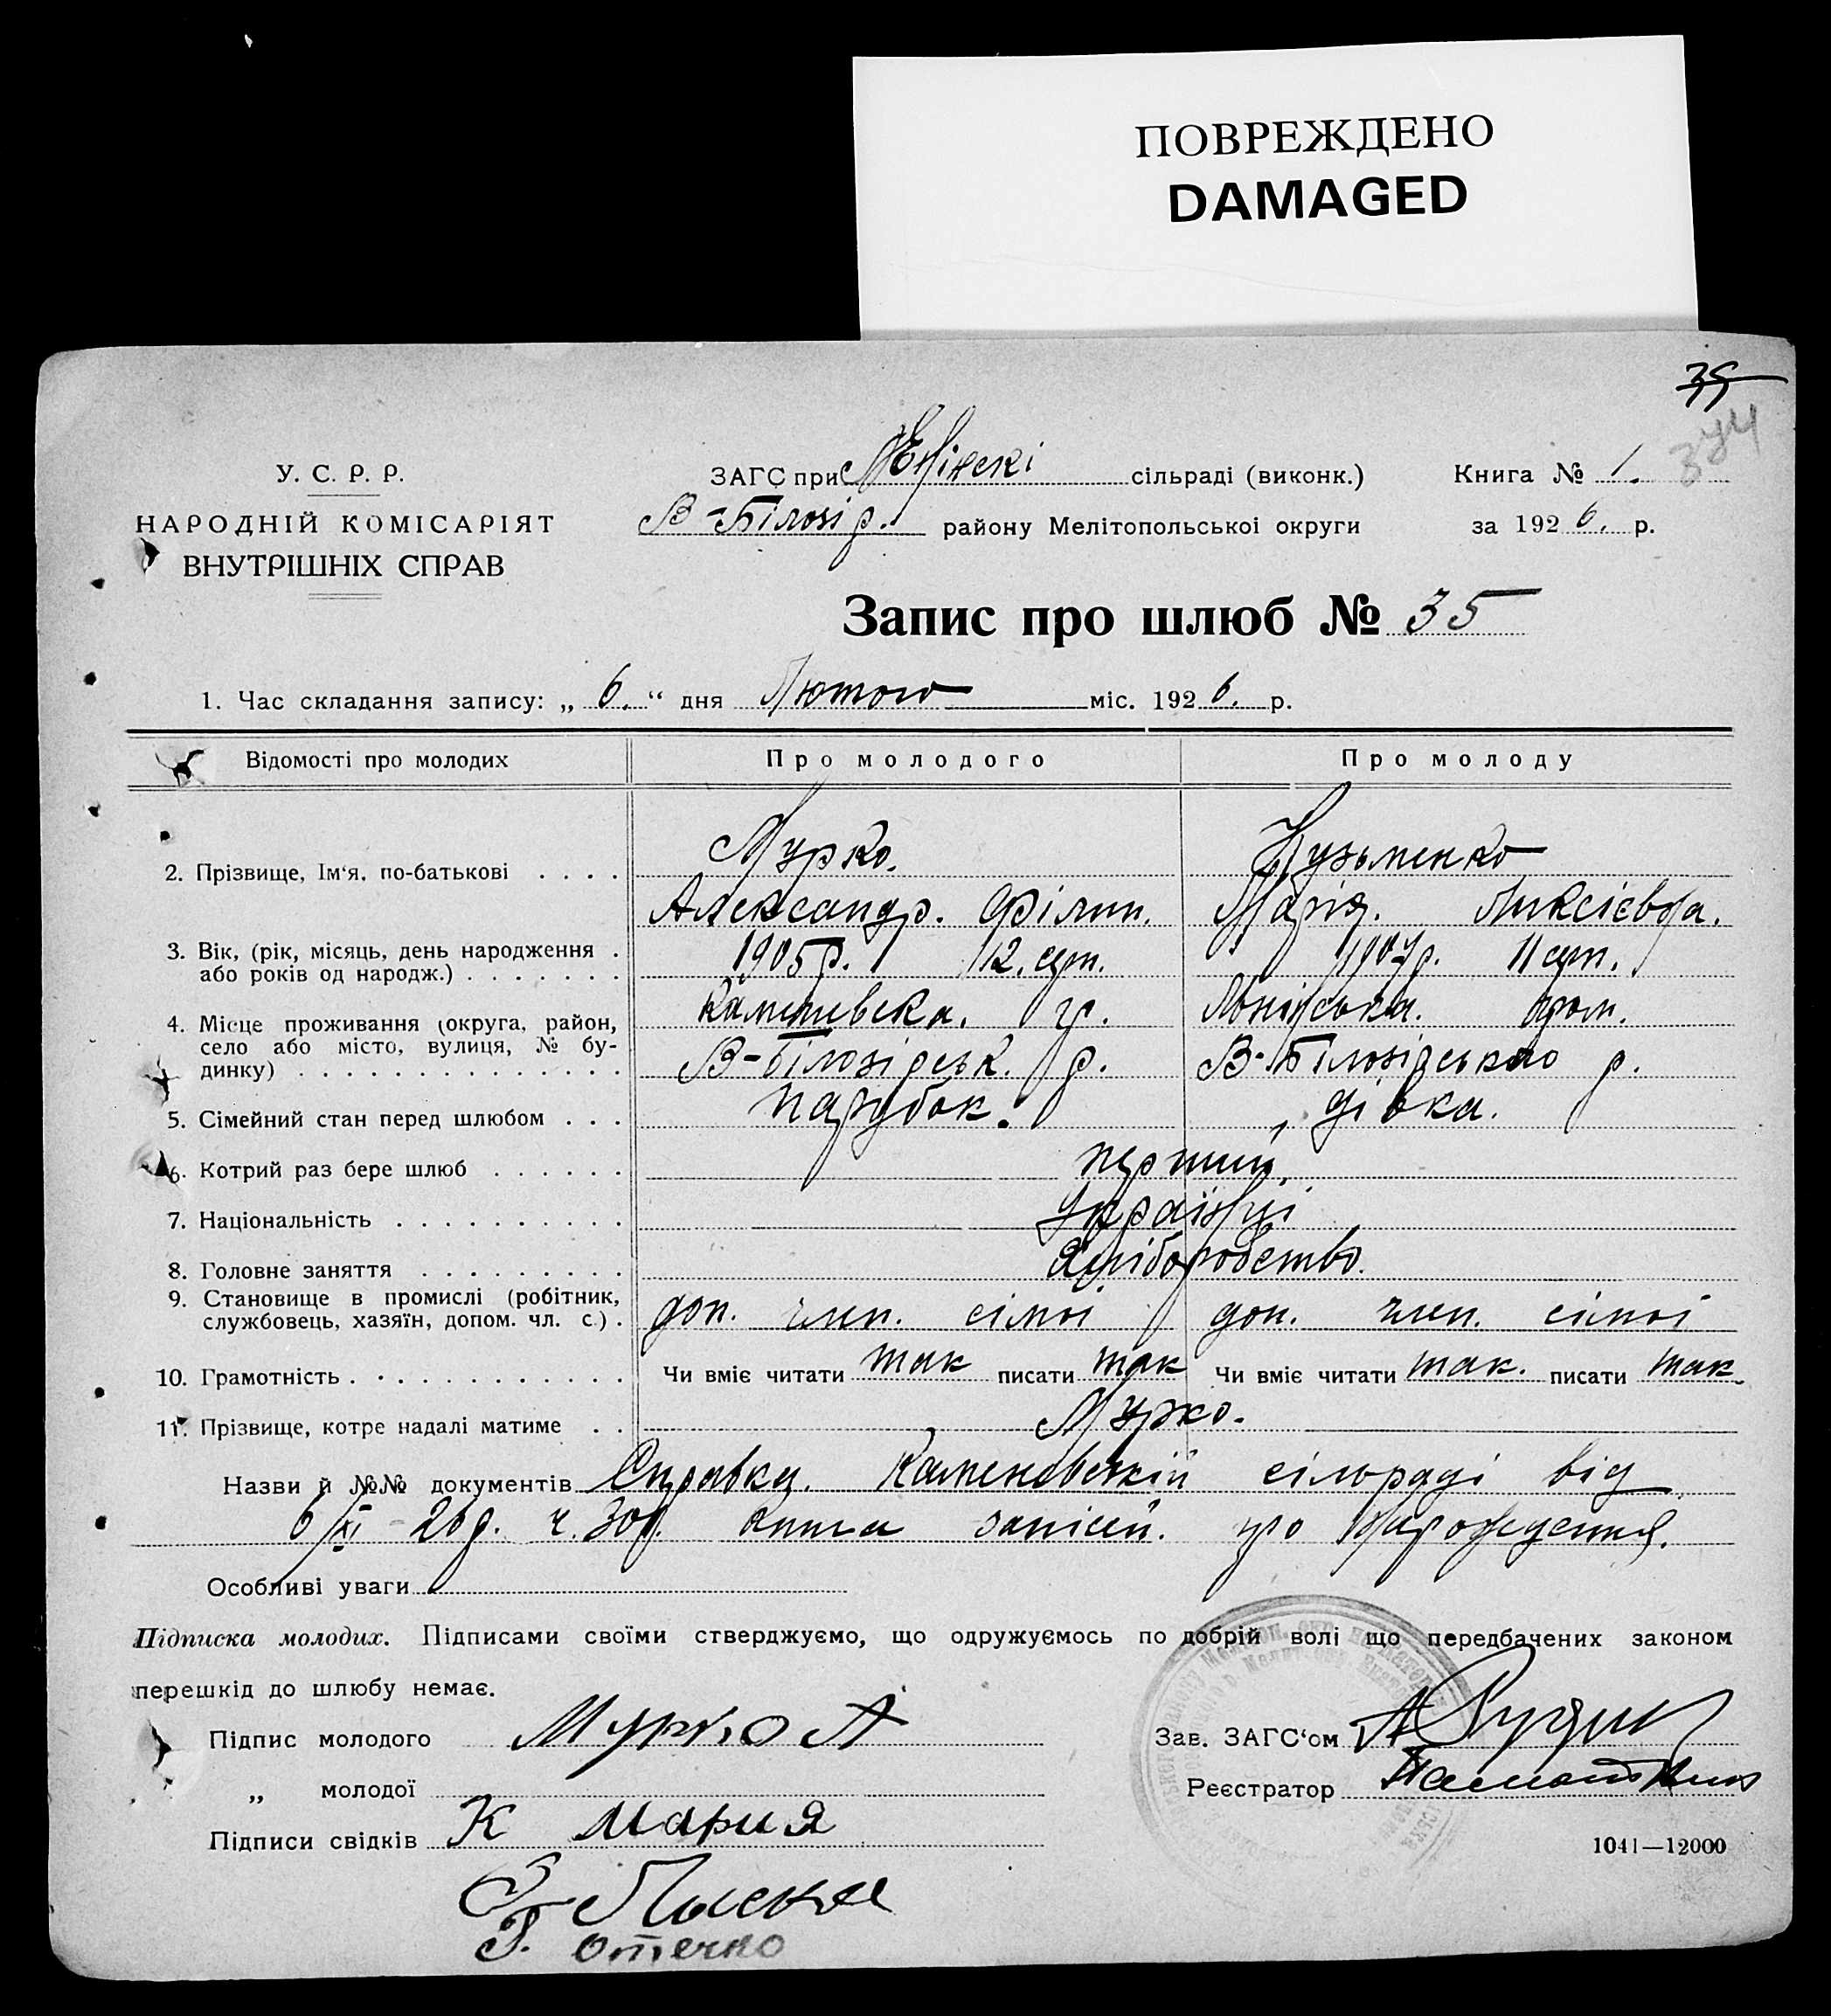 ПОВРЕЖДЕНО
DAMAGED
35
344
У. С. Р. Р.
НАРОДНІЙ КОМІСАРІЯТ
ВНУТРІШНІХ СПРАВ
ЗАГС при сільраді (виконк.)
В-Білозір. району Мелітопольської округи
Книга № 1.
за 1926. р.
Запис про шлюб № 35
1. Час складання запису: „ 6. “ дня Лютого міс. 1926. р.
Відомості про молодих Про молодого Про молоду
2. Прізвище, Ім'я, по-батькові . . . . Мурко. Кузьменко
Александр. Філип. Марія. Алксієвна.
3. Вік, (рік, місяць, день народження .
або років од народж.) . . . . . . . 1905 р. 12. серп. 1907 р. 11 серп.
4. Місце проживання (округа, район,
село або місто, вулиця, № бу-
динку) . . . . . . . . . . . . . .
гр. гром.
В-Білозірськ. р. В-Білозірського р.
5. Сімейний стан перед шлюбом . . . парубок. дівка.
6. Котрий раз бере шлюб . . . . . . перший.
7. Національність . . . . . . . . . . Українці
8. Головне заняття . . . . . . . . . Хліборобство.
9. Становище в промислі (робітник,
службовець, хазяїн, допом. чл. с.) . доп. член. сімьі доп. член. сімьі
10. Грамотність . . . . . . . . . . . . Чи вміє читати так писати так Чи вміє читати так. писати так.
11. Прізвище, котре надалі матиме . . Мурко.
Назви й №№ документів Справка. Каменовській сільраді від
6/XI – 26 р. ч. книга записей. про нарождення.
Особливі уваги
Підписка молодих. Підписами своїми стверджуємо, що одружуємось по добрій волі що передбачених законом
перешкід до шлюбу немає.
Підпис молодого Мурко А
„ молодої
Підписи свідків К Мария
Зав. ЗАГС'ом
Реєстратор
1041—12000